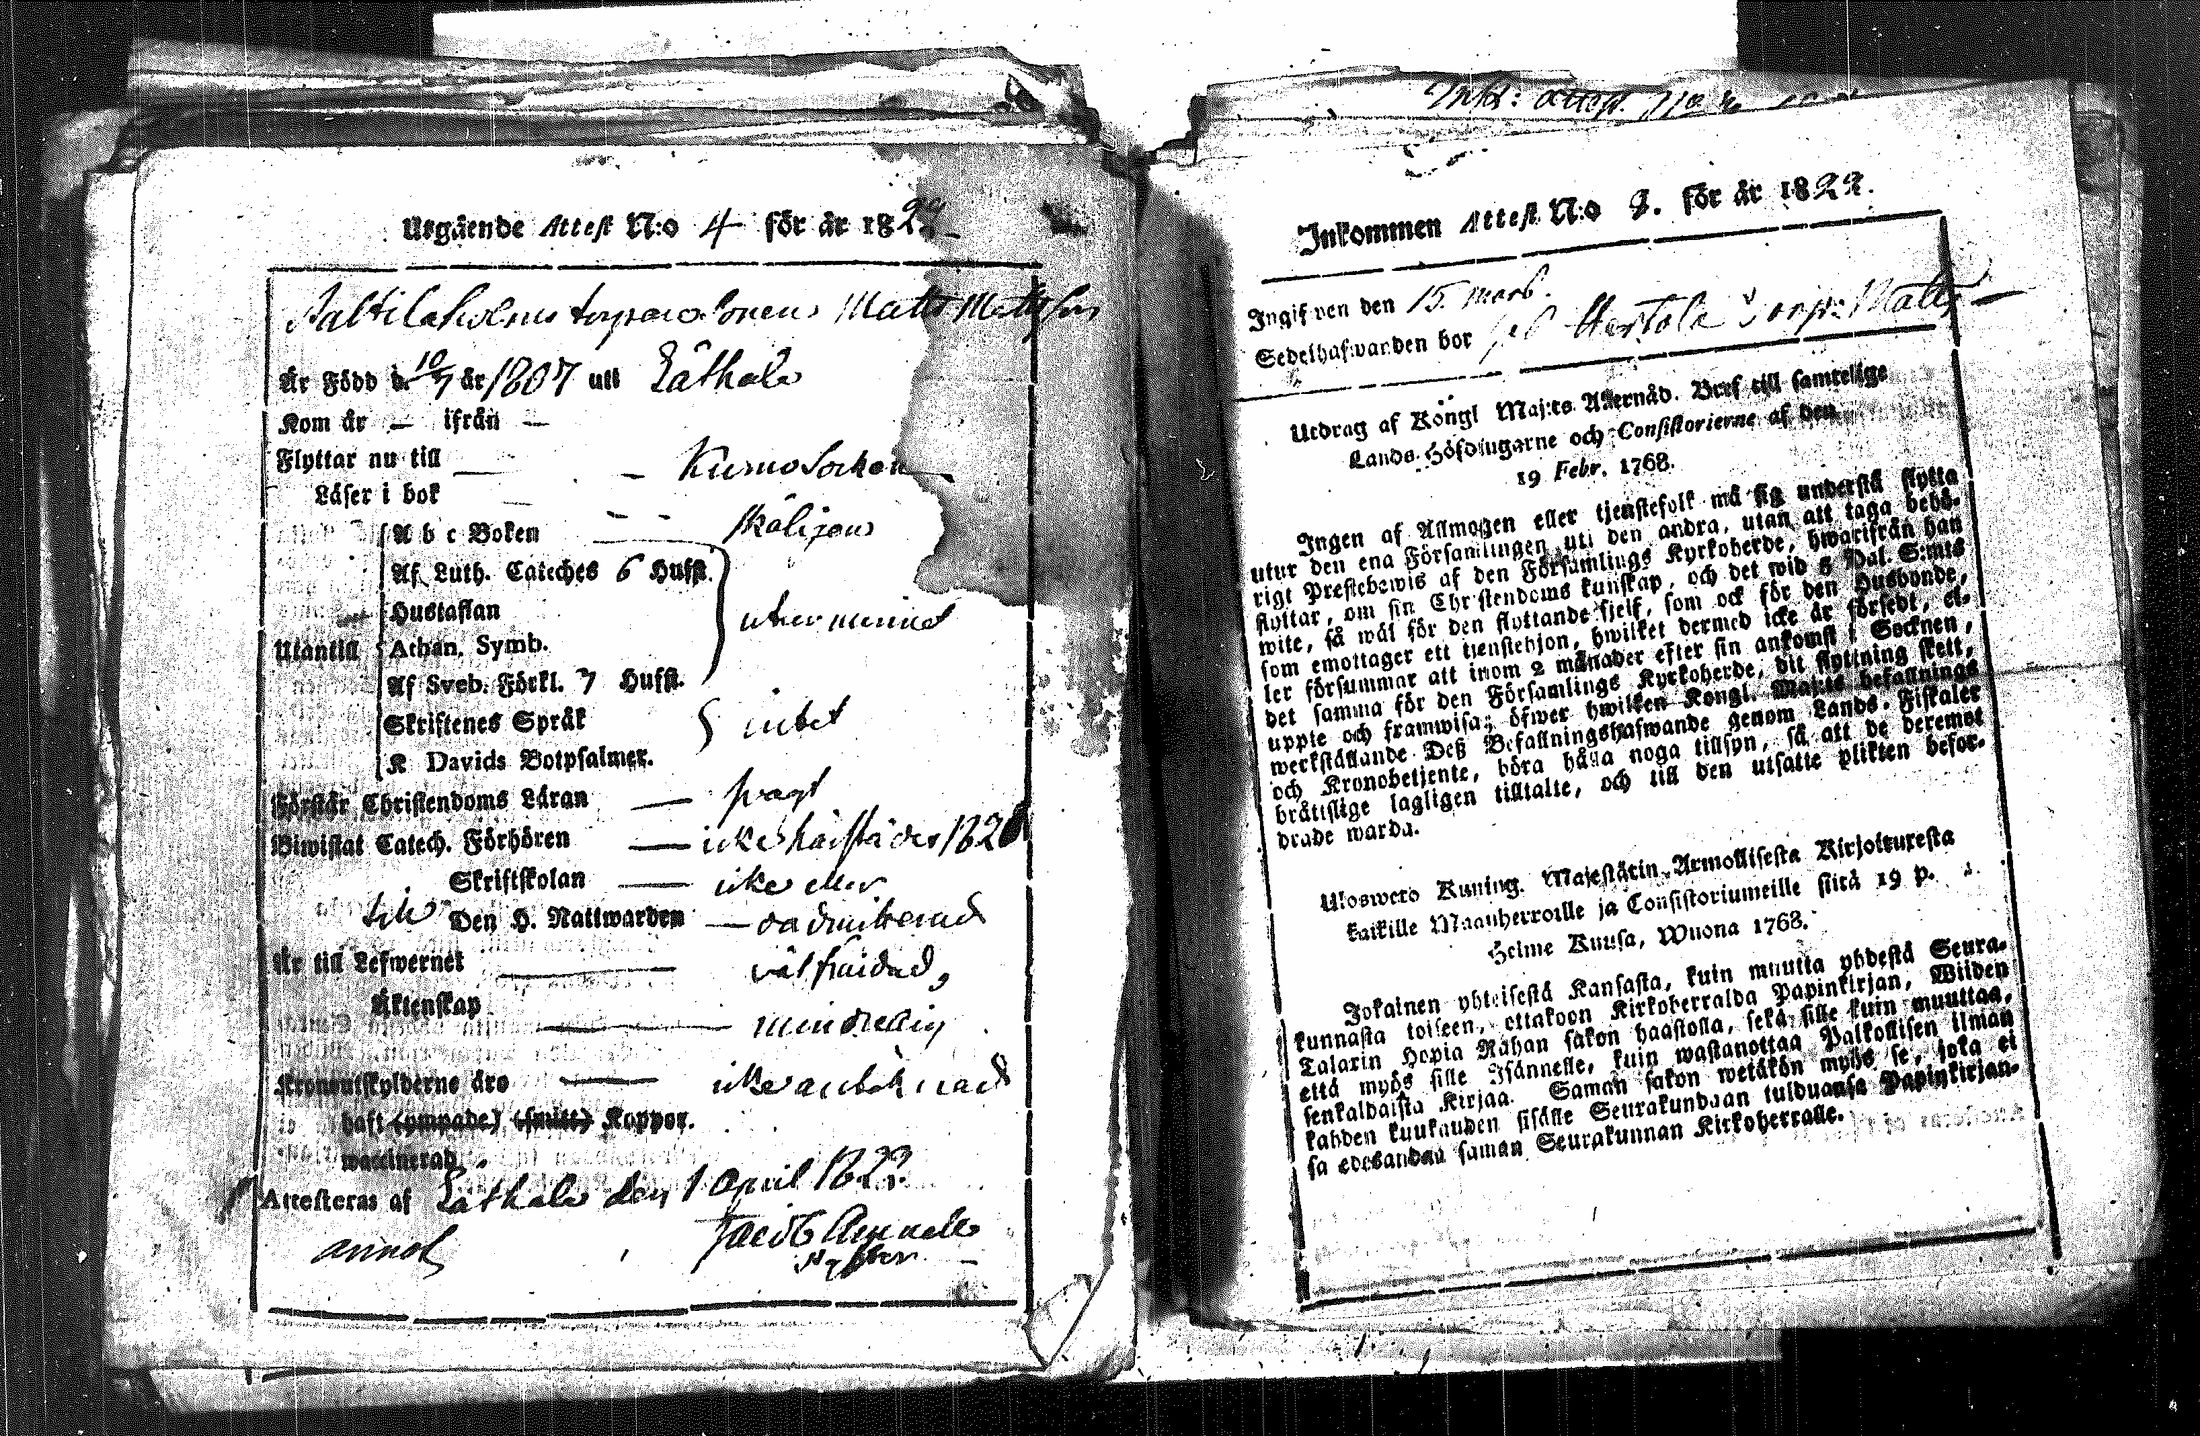 Utgående Attest N:o 4 för år 1822
torparesonen Matts Mattsson
Är Född d. 10/7 år 1807 uti Låthala
Kom år — ifrån —
Flyttar nu till — — Kumo Sockn
Läser i bok
A b c Boken — skäligen
Af Luth. Cateches 6 Hufst.
Hustaflan
utur minnet
Utantill Athan. Symb.
Af Sveb. Förkl. 7 Hufst.
Skriftenes Språk
intet
K Davids Botpsalmer.
Förstår Christendoms Läran — svagt
Biwistat Catech. Förhören — icke härstädes 182
Skriftskolan — icke eller
till Den H. Nattwarden — oadmitterad
Är till Lefwernet — välfräjdad,
Äktenskap — minderårig
Kronoutskylderne äro — icke antecknad
haft (ympade) (smitt) Koppor.
waccinerad
Attesteras af Låthala den 1 April 1822
Jacob
Inkommen Attest N:o 2. för år 1822.
Ingifven den 15. mars.
Sedelhafwanden bor Torp: Matts
Utdrag af Köngl Maj:ts Allernåd. Bref till samtelige
Lands-Höfdingarne och Consistorierne af den
19 Febr. 1768.
Ingen af Allmogen eller tjenstefolk må sig understå flytta
utur den ena Församlingen uti den andra, utan att taga behö-
rigt Prestebewis af den Församlings Kyrkoherde, hwarifrån han
flyttar, om sin Christendoms kunskap, och det wid 5 Dal. S:mts
wite, så wäl för den flyttande sjelf, som ock för den Husbonde,
som emottager ett tjenstehjon, hwilket dermed icke är försedt, el-
ler försummar att inom 2 månader efter sin ankomst i Socknen,
det samma för den Församlings Kyrkoherde, dit flyttning skett,
uppte och framwisa; öfwer hwilken Kongl. Maj:ts befallnings
werkställande Deß Befallningshafwande genom Lands-Fiskaler
och Kronobetjente, böra hålla noga tillsyn, så att de deremot
bråttslige lagligen tilltalte, och till den utsatte plikten befor-
drade warda.
Uloswero Kuning. Majestätin Armollisesta Kirjoituresta
kaikille Maanherroille ja Consistoriumeille siitä 19 p.
Helme Kuusa, Wuona 1768.
Jokainen yhteisestä Kansasta, kuin muutta yhdestä Seura-
kunnasta toiseen, ottakoon Kirkoherralda Papinkirjan, Wiiden
Talarin Hopia Rahan sakon haastolla, sekä sille kuin muuttaa,
että myös sille Isännelle, kuin wastanottaa Palkollisen ilman
senkaldaista Kirjaa. Saman sakon wetäkön myös se, joka ei
kahden kuukauden sisälle Seurakundaan tulduansa Papinkirjan-
sa edesandau saman Seurakunnan Kirkoherralle.